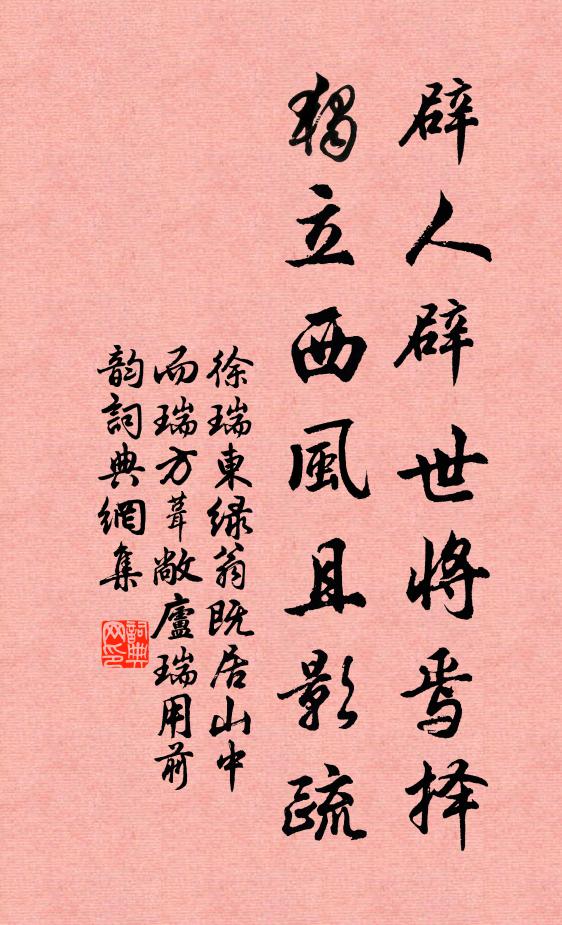 辟人辟世将焉择
獨立西風且影疏
徐瑞東绿翁既居山中
而瑞方葺敞廬瑞用前
韵詞典網集
詞典
网印